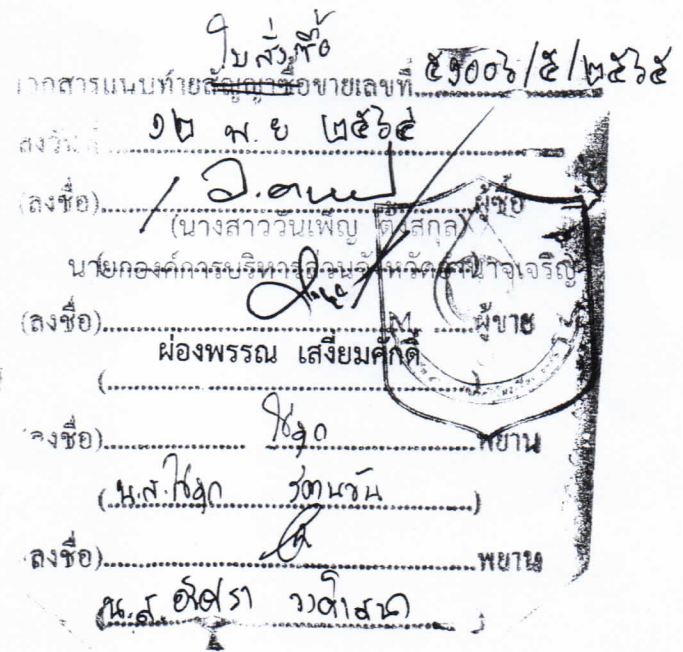 ใบสั่งซื้อ
เอกสารแนบท้ายสัญญาซื้อขายเลขที่ ๕๑๐๐๖/๕/๒๕๖๕
ลงวันที่ ๑๒ พ.ย ๒๕๖๕
(ลงชื่อ) ผู้ซื้อ
(นางสาววันเพ็ญ ตั้งสกุล)
นายกองค์การบริหารส่วนจังหวัดอำนาจเจริญ
(ลงชื่อ) ผู้ขาย
ผ่องพรรณ เสงี่ยมศักดิ์
(ลงชื่อ) พยาน
(น.ส. )
(ลงชื่อ) พยาน
น.ส.